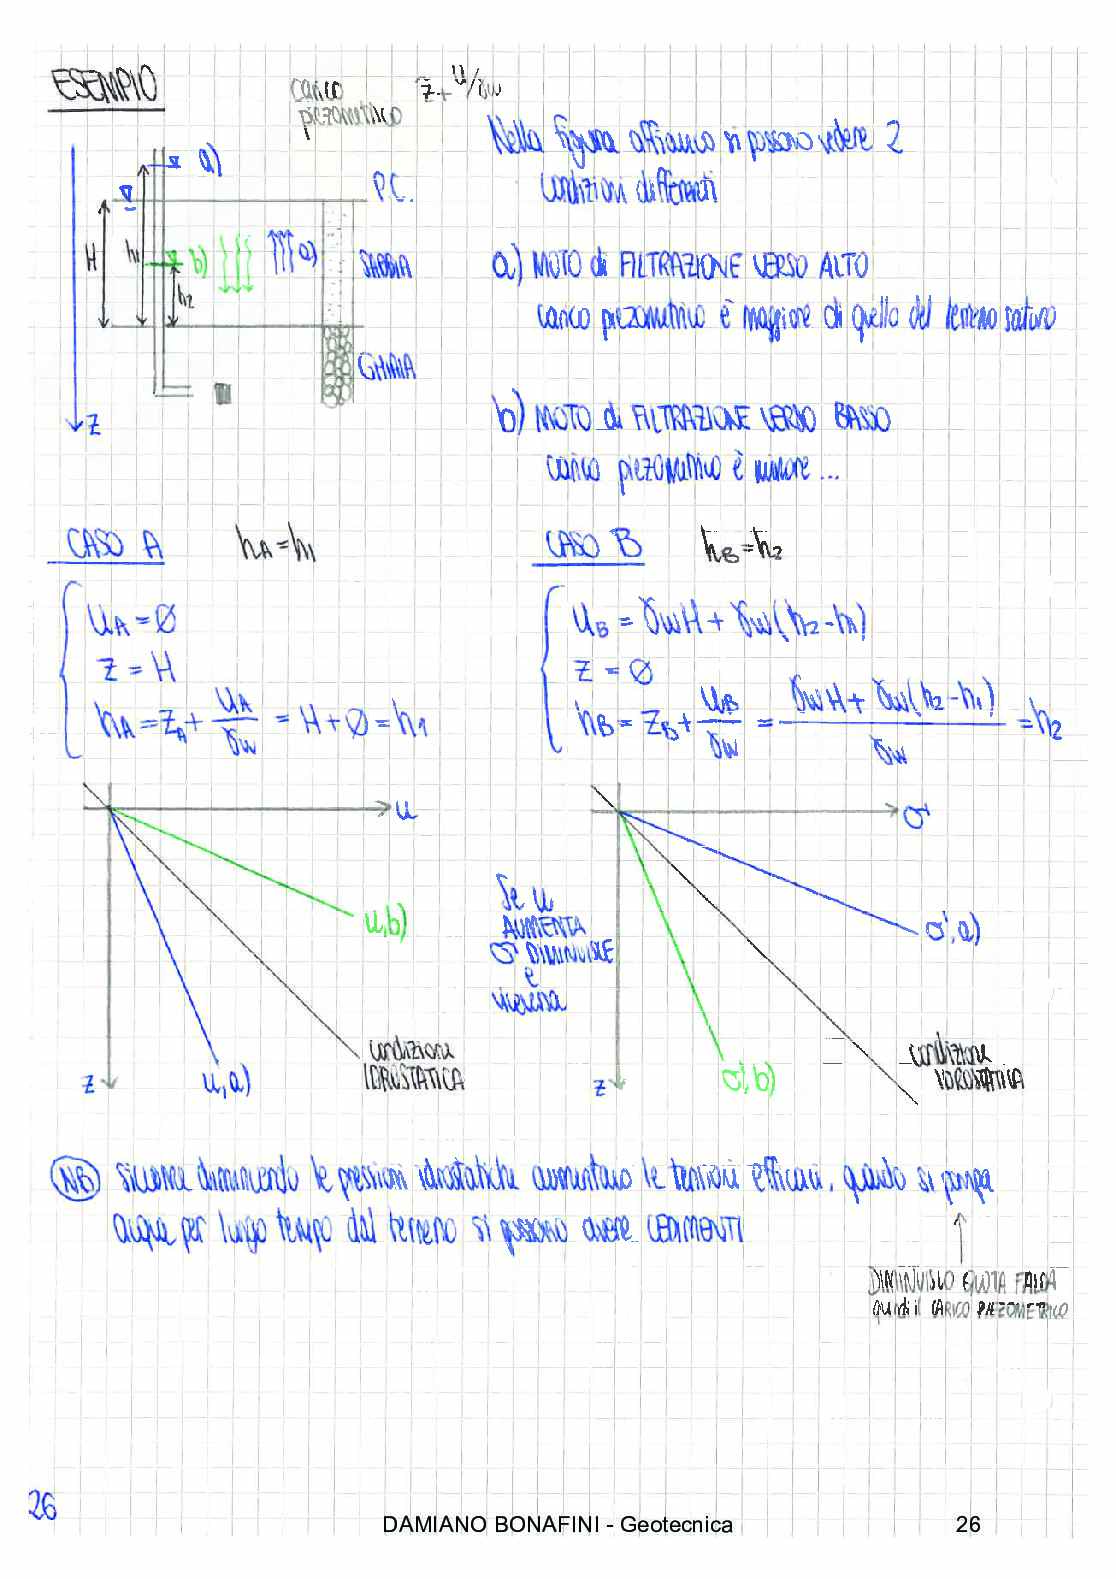 ESEMPIO
carico piezometrico z+u/γw
Nella figura affianco si possono vedere 2
condizioni differenti
a)
P.C.
H
h1
b)
h2
a)
SABBIA
GHIAIA
z
a) MOTO di FILTRAZIONE VERSO ALTO
carico piezometrico è maggiore di quello del terreno saturo
b) MOTO di FILTRAZIONE VERSO BASSO
carico piezometrico è minore ...
CASO A hA=h1
uA=Ø
z=H
hA=zA+uA/γw=H+Ø=h1
CASO B hB=h2
uB=γwH+γw(h2-h1)
z=Ø
hB=zB+uB/γw=(γwH+γw(h2-h1))/γw=h2
u
u,b)
condizione
IDROSTATICA
u,a)
z
Se u
AUMENTA
σ' DIMINUISCE
e
viceversa
σ'
σ',a)
condizione
IDROSTATICA
σ',b)
z
NB siccome diminuendo le pressioni idrostatiche aumentano le tensioni efficaci, quando si pompa
acqua per lungo tempo dal terreno si possono avere CEDIMENTI
DIMINUISCO QUOTA FALDA
quindi il CARICO PIEZOMETRICO
26
DAMIANO BONAFINI - Geotecnica 26